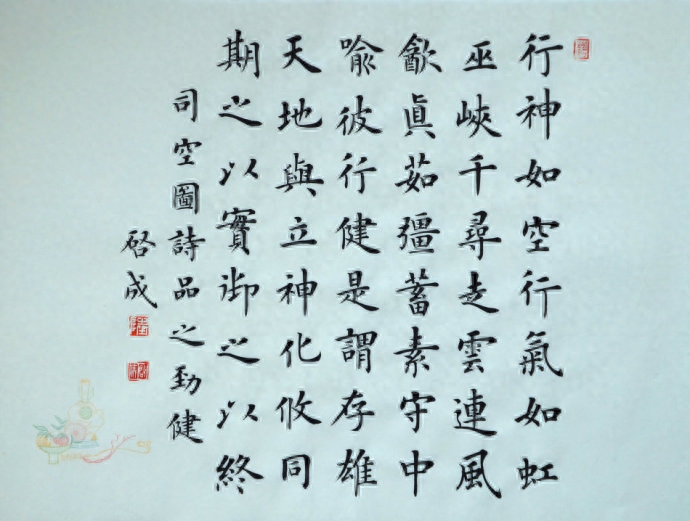 行神如空行氣如虹
巫峽千尋走雲連風
歙真茹彊蓄素守中
喻彼行健是謂存雄
天地與立神化攸同
期之以實御之以終
司空圖詩品之勁健
啓成